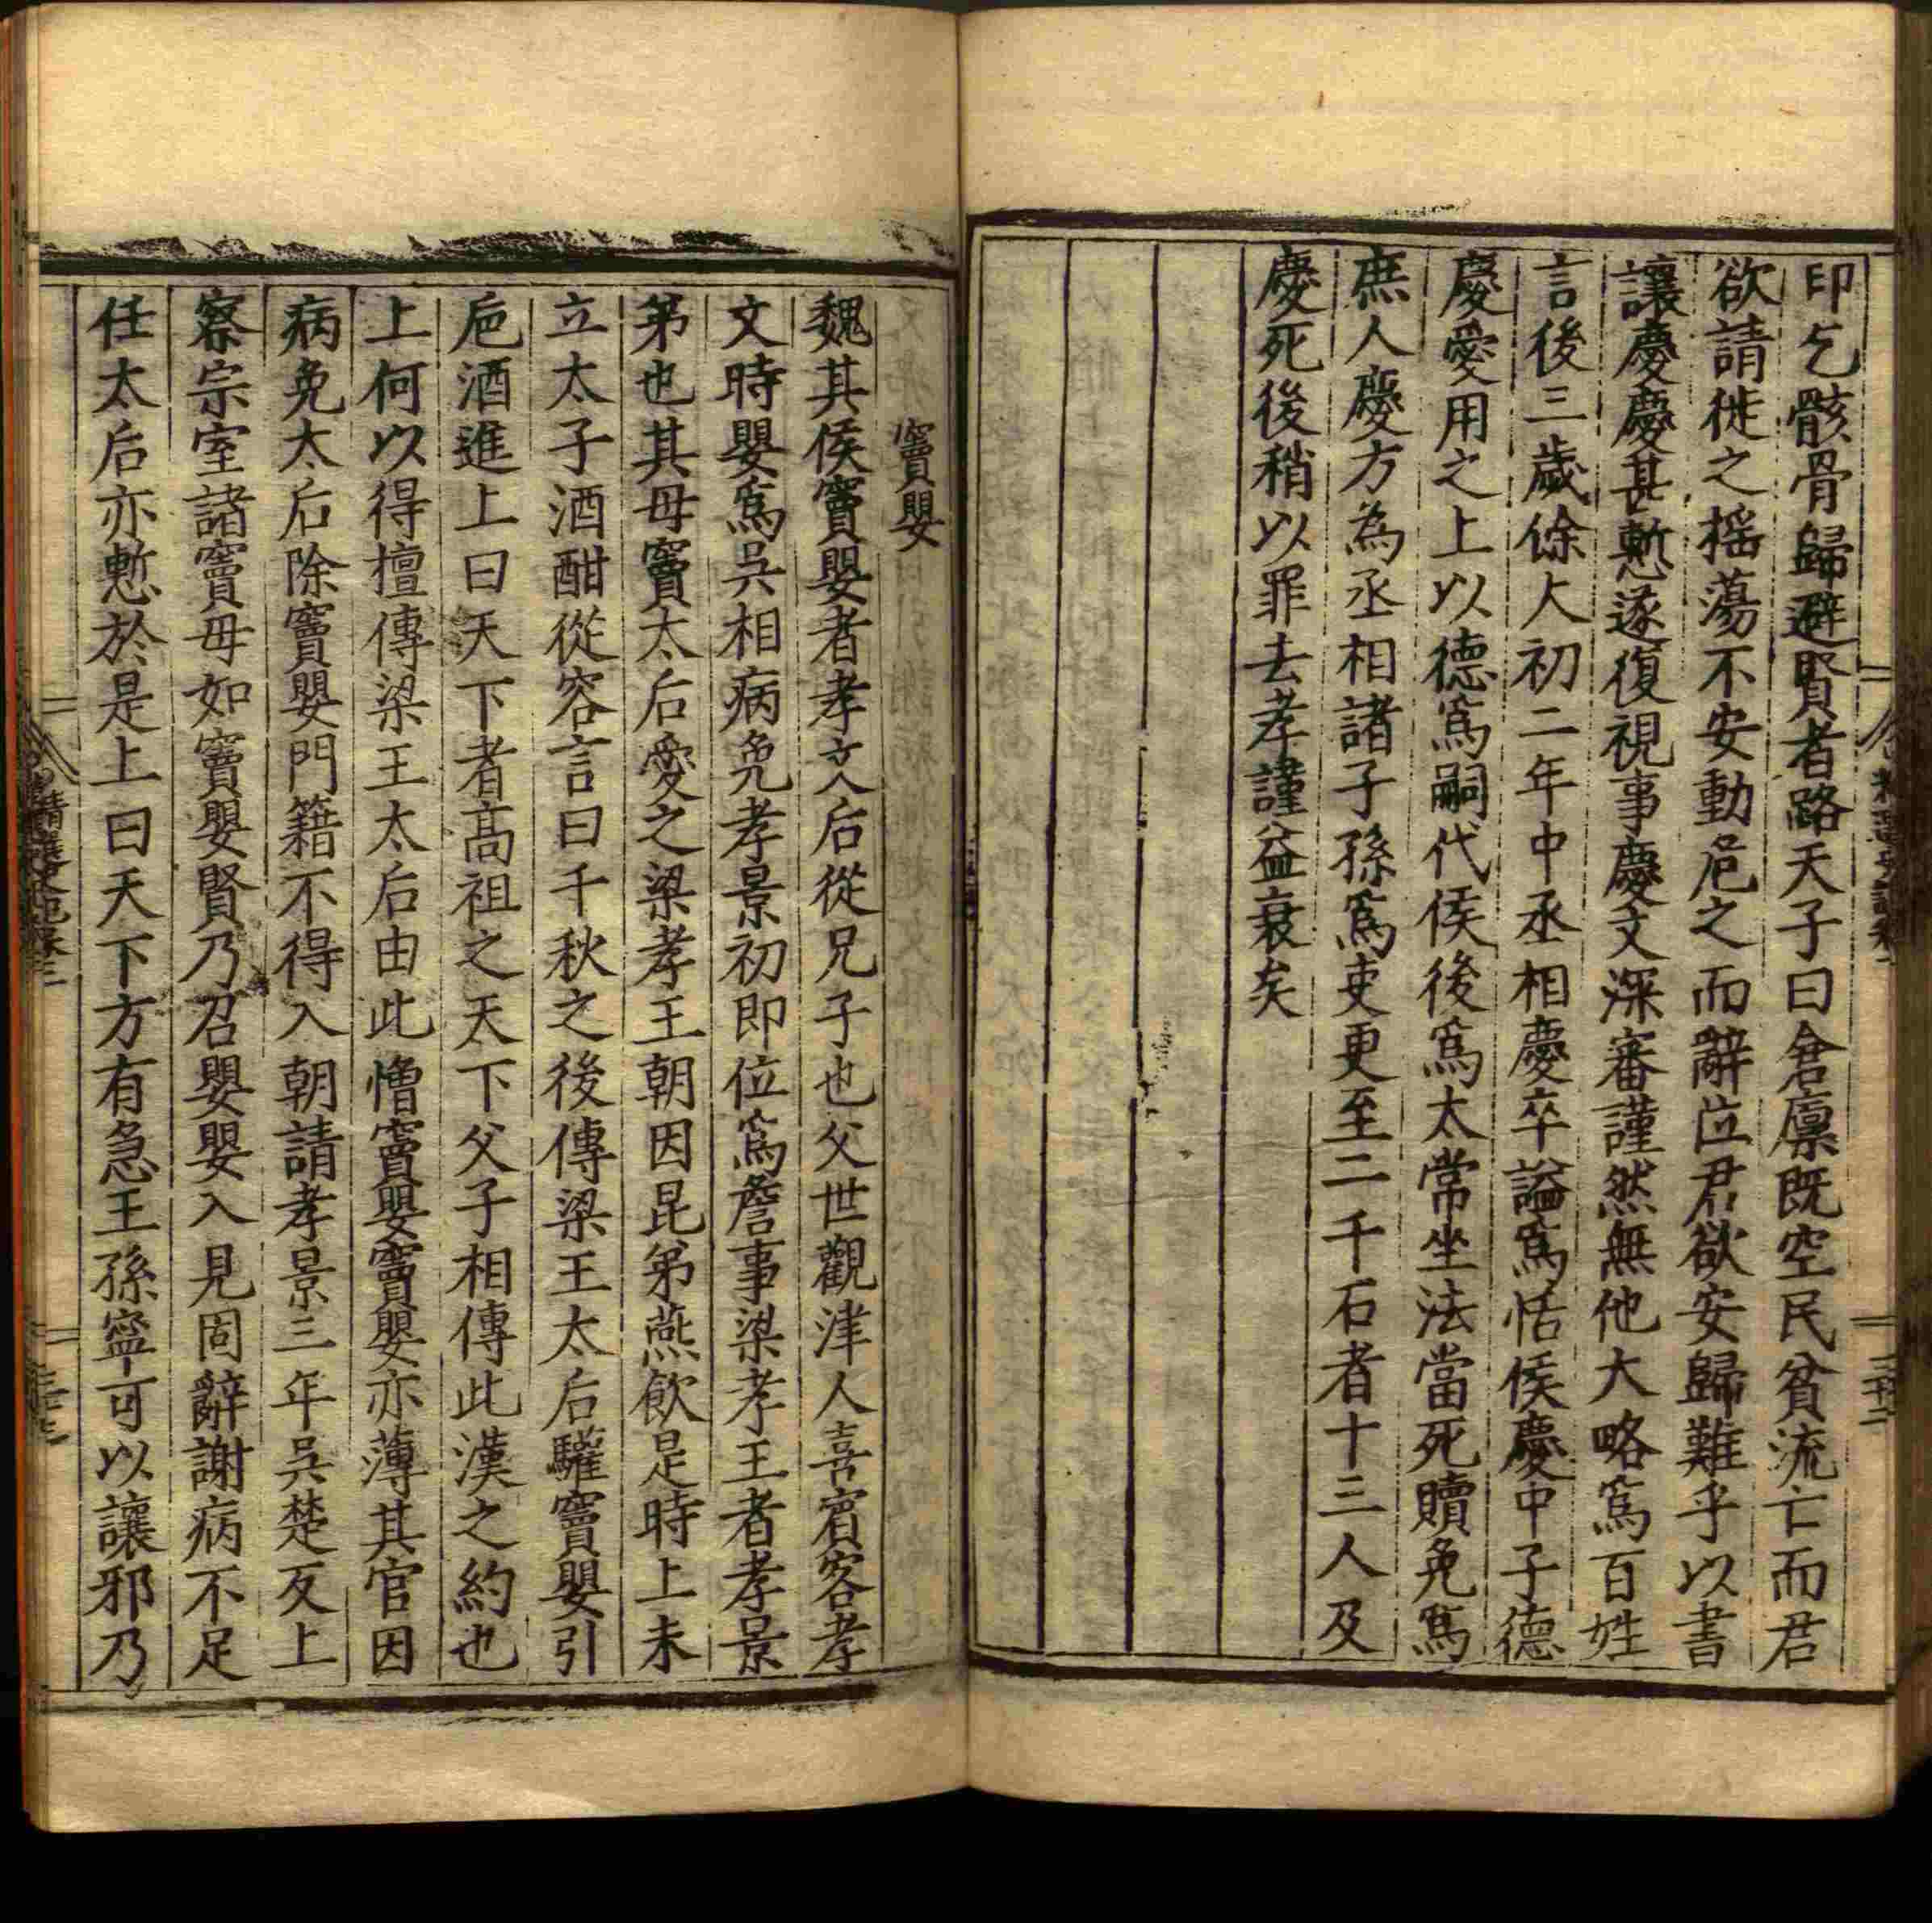 印乞骸骨歸避賢者路天子曰倉廩既空民貧流亡而君
欲請徙之揺蕩不安動危之而辭位君欲安歸難乎以書
讓慶慶甚慙遂復視事慶文深審謹然無他大略爲百姓
言後三歲餘太初二年中丞相慶卒謚爲恬侯慶中子德
慶愛用之上以德爲嗣代侯後爲太常坐法當死贖免爲
庶人慶方為丞相諸子孫爲吏更至二千石者十三人及
慶死後稍以罪去孝謹益衰矣
竇嬰
魏其侯竇嬰者孝文后從兄子也父世觀津人喜賓客孝
文時嬰爲吳相病免孝景初即位爲詹事梁孝王者孝景
弟也其母竇太后愛之梁孝王朝因昆弟燕飲是時上未
立太子酒酣從容言曰千秋之後傳梁王太后驩竇嬰引
巵酒進上曰天下者高祖之天下父子相傳此漢之約也
上何以得擅傳梁王太后由此憎竇嬰竇嬰亦薄其官因
病免太后除竇嬰門籍不得入朝請孝景三年吳楚反上
察宗室諸竇毋如竇嬰賢乃召嬰嬰入見固辭謝病不足
任太后亦慙於是上曰天下方有急王孫寧可以讓邪乃